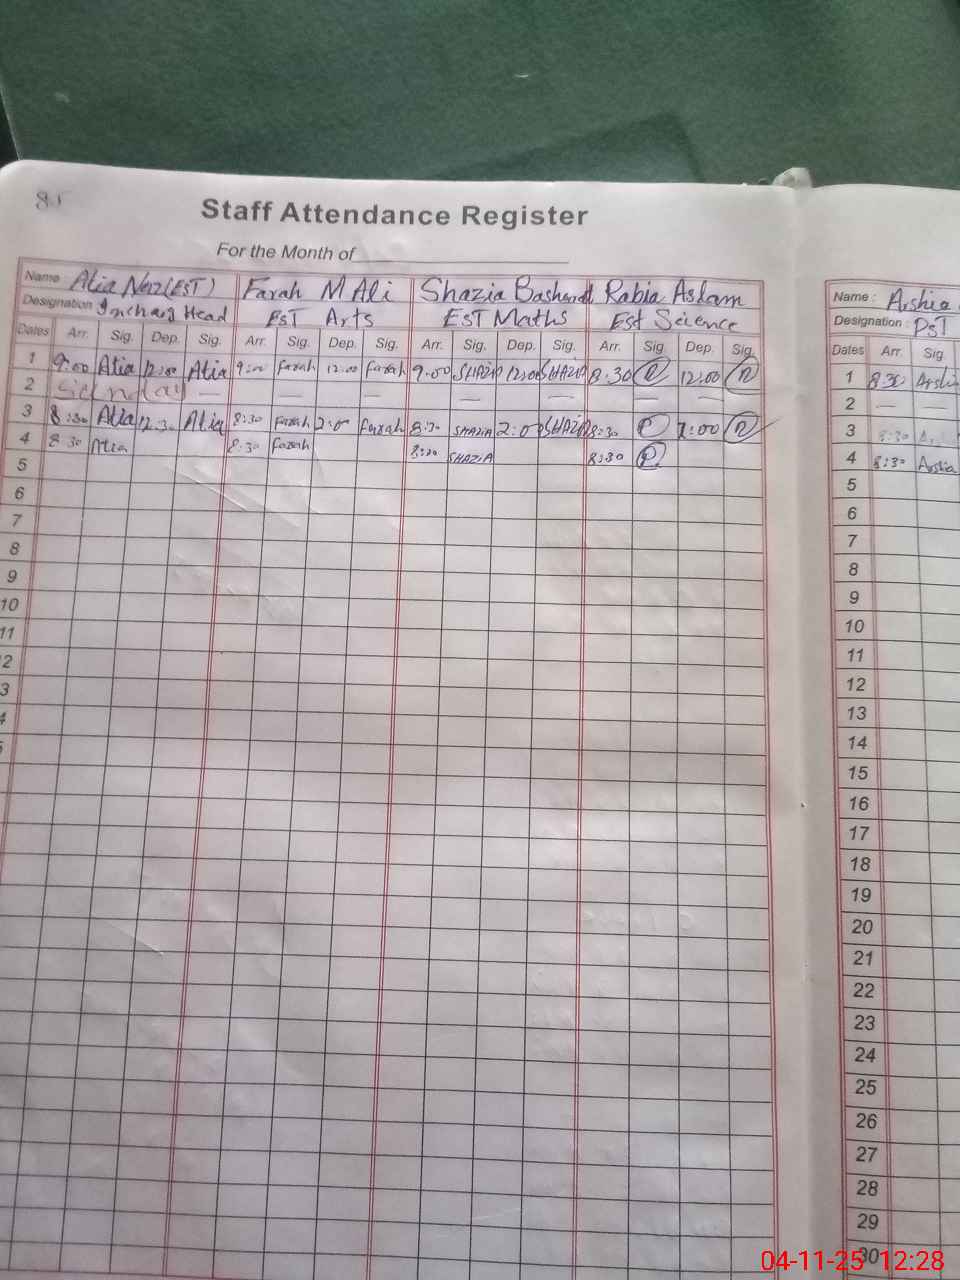 85
Staff Attendance Register
For the Month of
Name Atia Naz (EST) Farah M Ali Shazia Bashand Rabia Aslam
Designation Incharg Head EST Arts EST Maths Est Science
Dates Arr. Sig. Dep. Sig. Arr. Sig. Dep. Sig. Arr. Sig. Dep. Sig. Arr. Sig Dep. Sig.
1 9:00 Atia 12:00 Atia 9:00 Farah 12:00 Farah 9:00 SHAZIA 12:00 SHAZIA 8:30 R 12:00 R
2 Sunday — — — — — — — — — —
3 8:30 Atia 12:30 Atia 8:30 Farah 2:00 Farah 8:30 SHAZIA 2:00 SHAZIA 8:30 2:00 R
4 8:30 Atia 8:30 Farah 8:30 SHAZIA 8:30 R
5
6
7
8
9
10
11
2
3
4
5
Name : Arshia
Designation : PST
Dates Arr. Sig.
1 8:30 Arshia
2 — —
3 8:30
4 8:30 Arshia
5
6
7
8
9
10
11
12
13
14
15
16
17
18
19
20
21
22
23
24
25
26
27
28
29
30
04-11-25 12:28